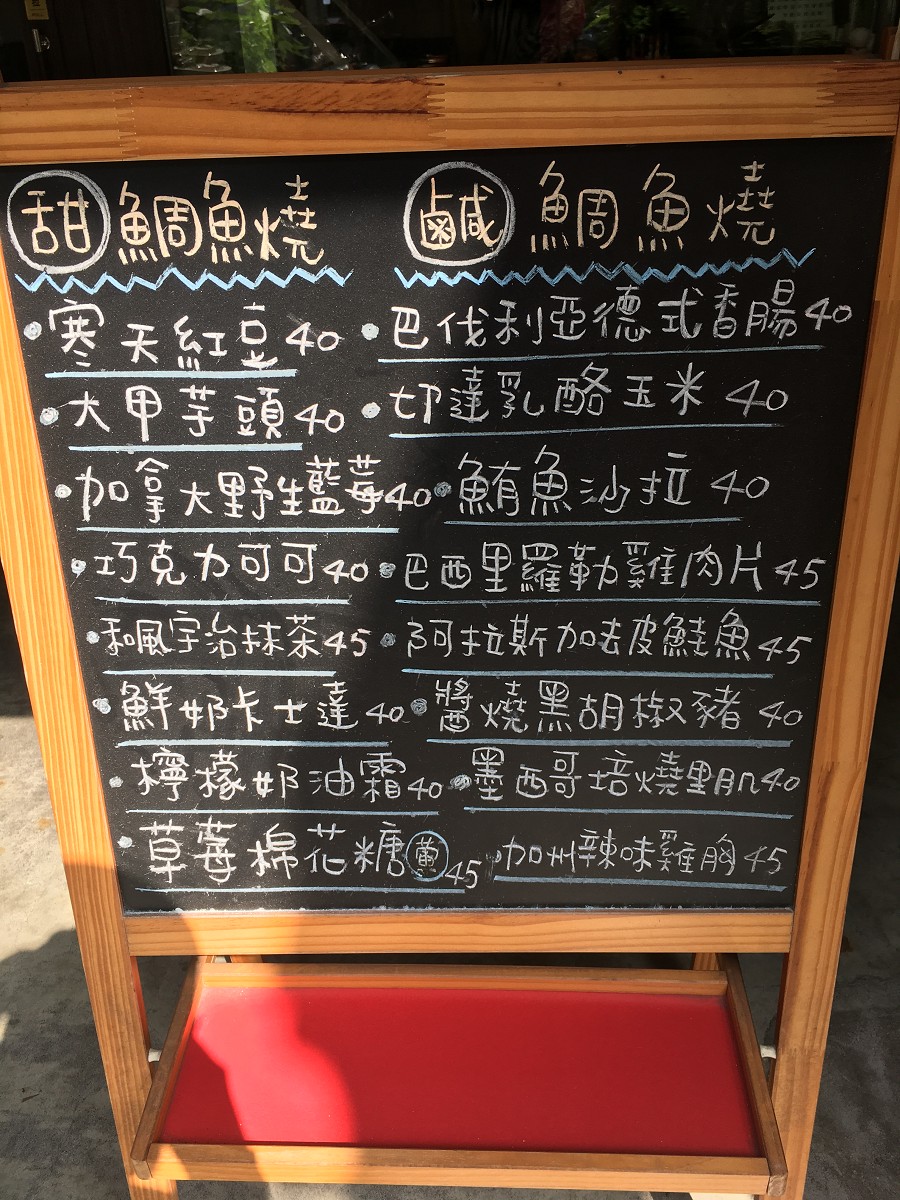 甜鯛魚燒
寒天紅豆40
大甲芋頭40
加拿大野生藍莓40
巧克力可可40
和風宇治抹茶45
鮮奶卡士達40
檸檬奶油霜40
草莓棉花糖 45
鹹鯛魚燒
巴伐利亞德式香腸40
切達乳酪玉米40
鮪魚沙拉40
巴西里羅勒雞肉片45
阿拉斯加去皮鮭魚45
醬燒黑胡椒豬40
墨西哥培燒里肌40
加州辣味雞胸45